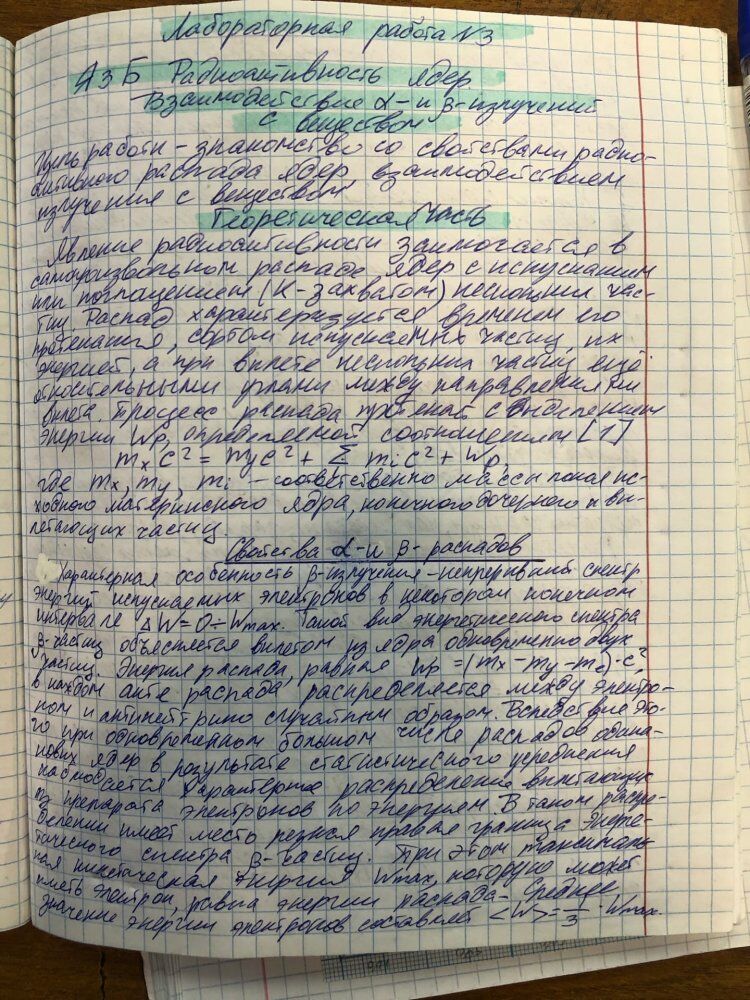 Лабораторная работа №3
А3Б Радиоактивность ядер
Взаимодействие α- и β-излучений
с веществом
Цель работы - знакомство со свойствами радио-
активного распада ядер, взаимодействием
излучения с веществом
Теоретическая часть
Явление радиоактивности заключается в
самопроизвольном распаде ядер с испусканием
или поглощением (К-захватом) нескольких час-
тиц. Распад характеризуется временем его
протекания, сортом испускаемых частиц, их
энергией, а при вылете нескольких частиц ещё
относительными углами между направлениями
вылета. Процесс распада протекает с выделением
энергии Wp, определяемой соотношением [1]
mₓc² = m_yc² + Σ mᵢc² + Wp,
где mₓ, m_y, mᵢ - соответственно массы покоя ис-
ходного материнского ядра, конечного дочернего и вы-
летающих частиц.
Свойства α- и β- распадов
Характерная особенность β-излучения - непрерывный спектр
энергий испускаемых электронов в некотором конечном
интервале ΔW=0÷Wmax. Такой вид энергетического спектра
β-частиц объясняется вылетом из ядра одновременно двух
частиц. Энергия распада, равная Wp =(mₓ-m_y-mₑ)·c²,
в каждом акте распада распределяется между электро-
ном и антинейтрино случайным образом. Вследствие это-
го при одновременном большом числе распадов одина-
ковых ядер в результате статистического усреднения
наблюдается характерное распределение вылетающих
из препарата электронов по энергиям. В таком распре-
делении имеет место резкая правая граница энерге-
тического спектра β-частиц. При этом максималь
ная кинетическая энергия Wmax, которую может
иметь электрон, равна энергии распада. Среднее
значение энергии электронов составляет <W>=1/3·Wmax.